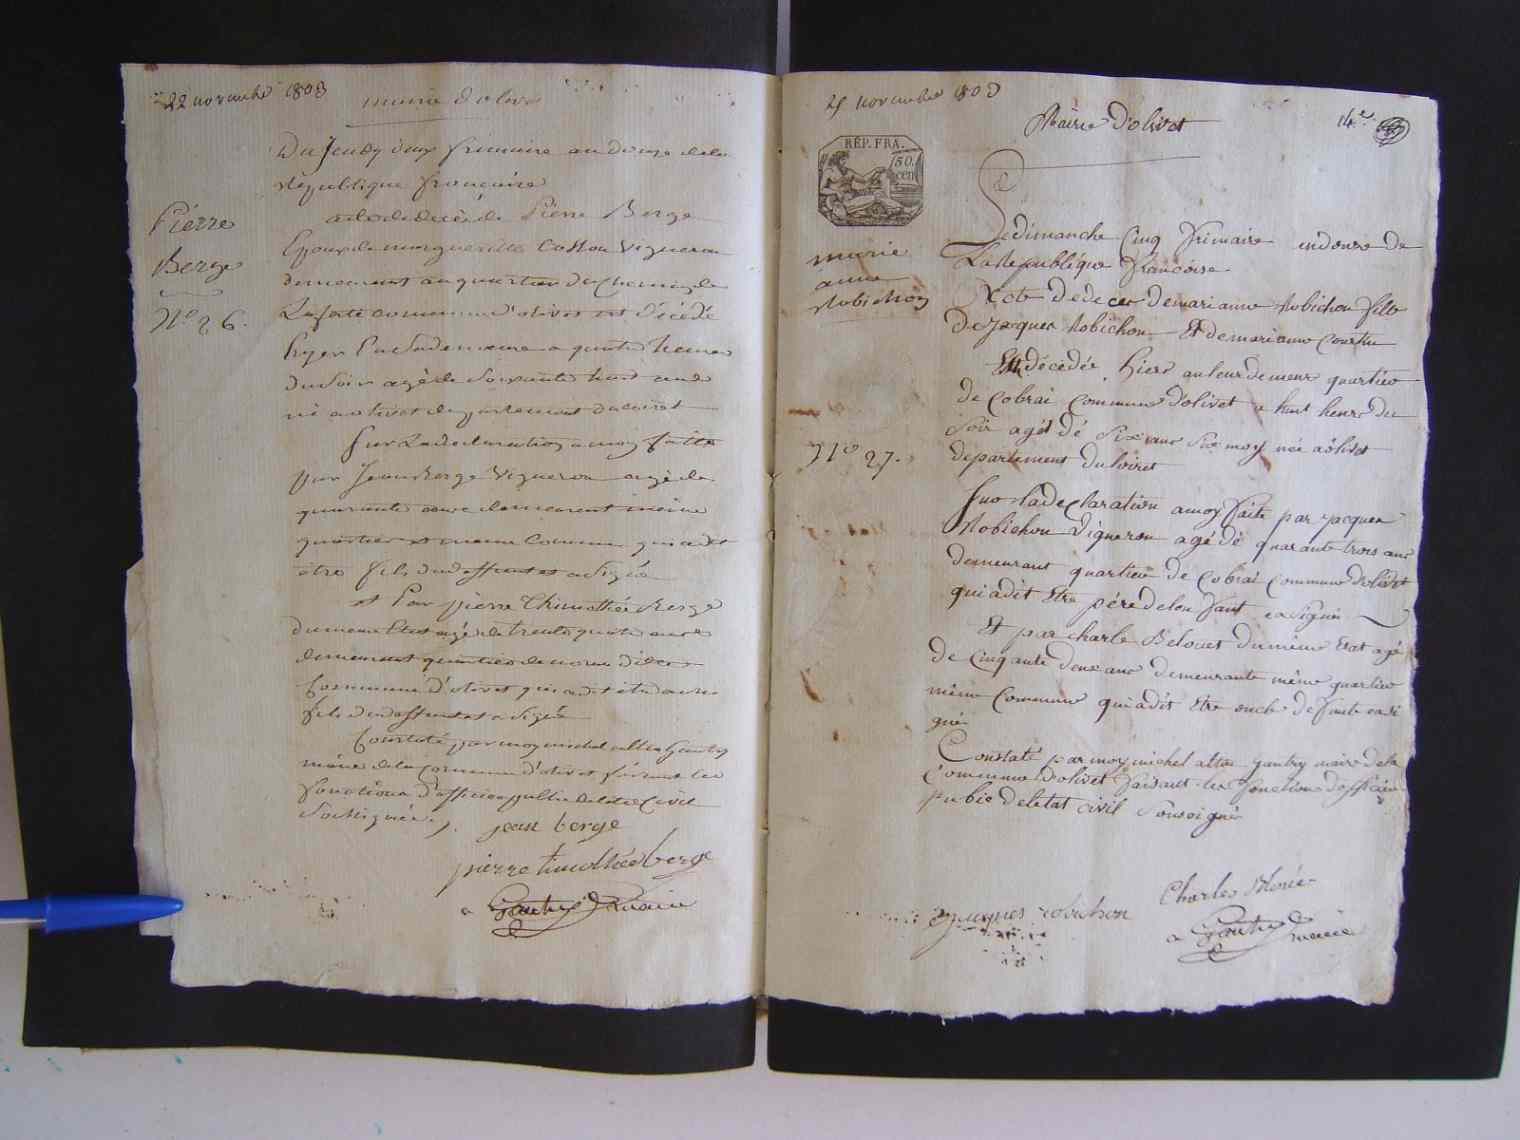 22 novembre 1803
mairie d'olivet
Du Jeudy deux frimaire an douze dela
Republique françoise
acte de decé de Pierre Berge
Epoux de margueritte Vigneron
demeurant au quartier du Chemin de
La ferté commune d'olivet est décédé
hyer en sa demeure a quatre heures
du soir agé de soixante huit ans
né a olivet departement du Loiret
Sur La declaration a moy faitte
par Jean Berge Vigneron agé de
quarante ans demeurant même
quartier et meme Commune qui a dit
etre fils du deffunt et a Signé
et Par pierre Thimothée Berge
du meme Etat agé de trente quatre ans
demeurant quartier de
Commune d'olivet qui a dit etre aussi
fils du deffunt et a Signé
Constaté par moy michel alten Gautry
maire de la Commune d'olivet faisant les
fonctions d'officier public de letat Civil
Soussigné
jean berge
pierre timothée berge
Gautry maire
Pierre
Berge
N.o 26.
25 novembre 1803
Mairie d'olivet
14e.
RÉP. FRA.
50.
cen
marie
anne
Robichon
N.o 27.
Le dimanche Cinq frimaire an douze de
La Republique françoise
Acte De deces de marianne Robichon fille
De Jacques Robichon Et de marianne Courtin
Est décédée hier au leur demeure quartier
de Cobrai Commune d'olivet a huit heure du
Soir agét dé Six ans Six moy née a olivet
departement du loiret
Sur la declaration a moy faite par jacques
Robichon Vigneron agé dé quarante trois ans
demeurant quartier de Cobrai Commune d'olivet
qui a dit Etre pére de la defunt ea Signé
Et par charle Belouet du même Etat agé
de Cinquante deux ans demeurante même quartier
même Commune qui a dit Etre oncle de funte ea Si
gné
Constaté par moy michel alten gautry maire de la
Commune d'olivet faisant les fonctions d'officier
public de letat civil Sousoigné
Jacques robichon
Charles
Gautry maire